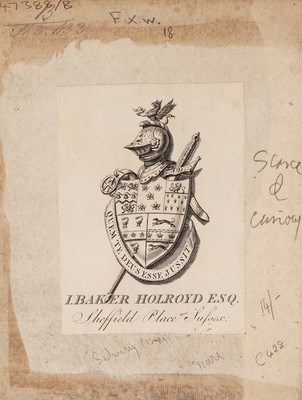 47388/B
F x.w.
18
Scarce
&
Curious
QUEM TE DEUS ESSE JUSSIT
I. BAKER HOLROYD ESQ.
Sheffield Place Sussex.
14/-
C422